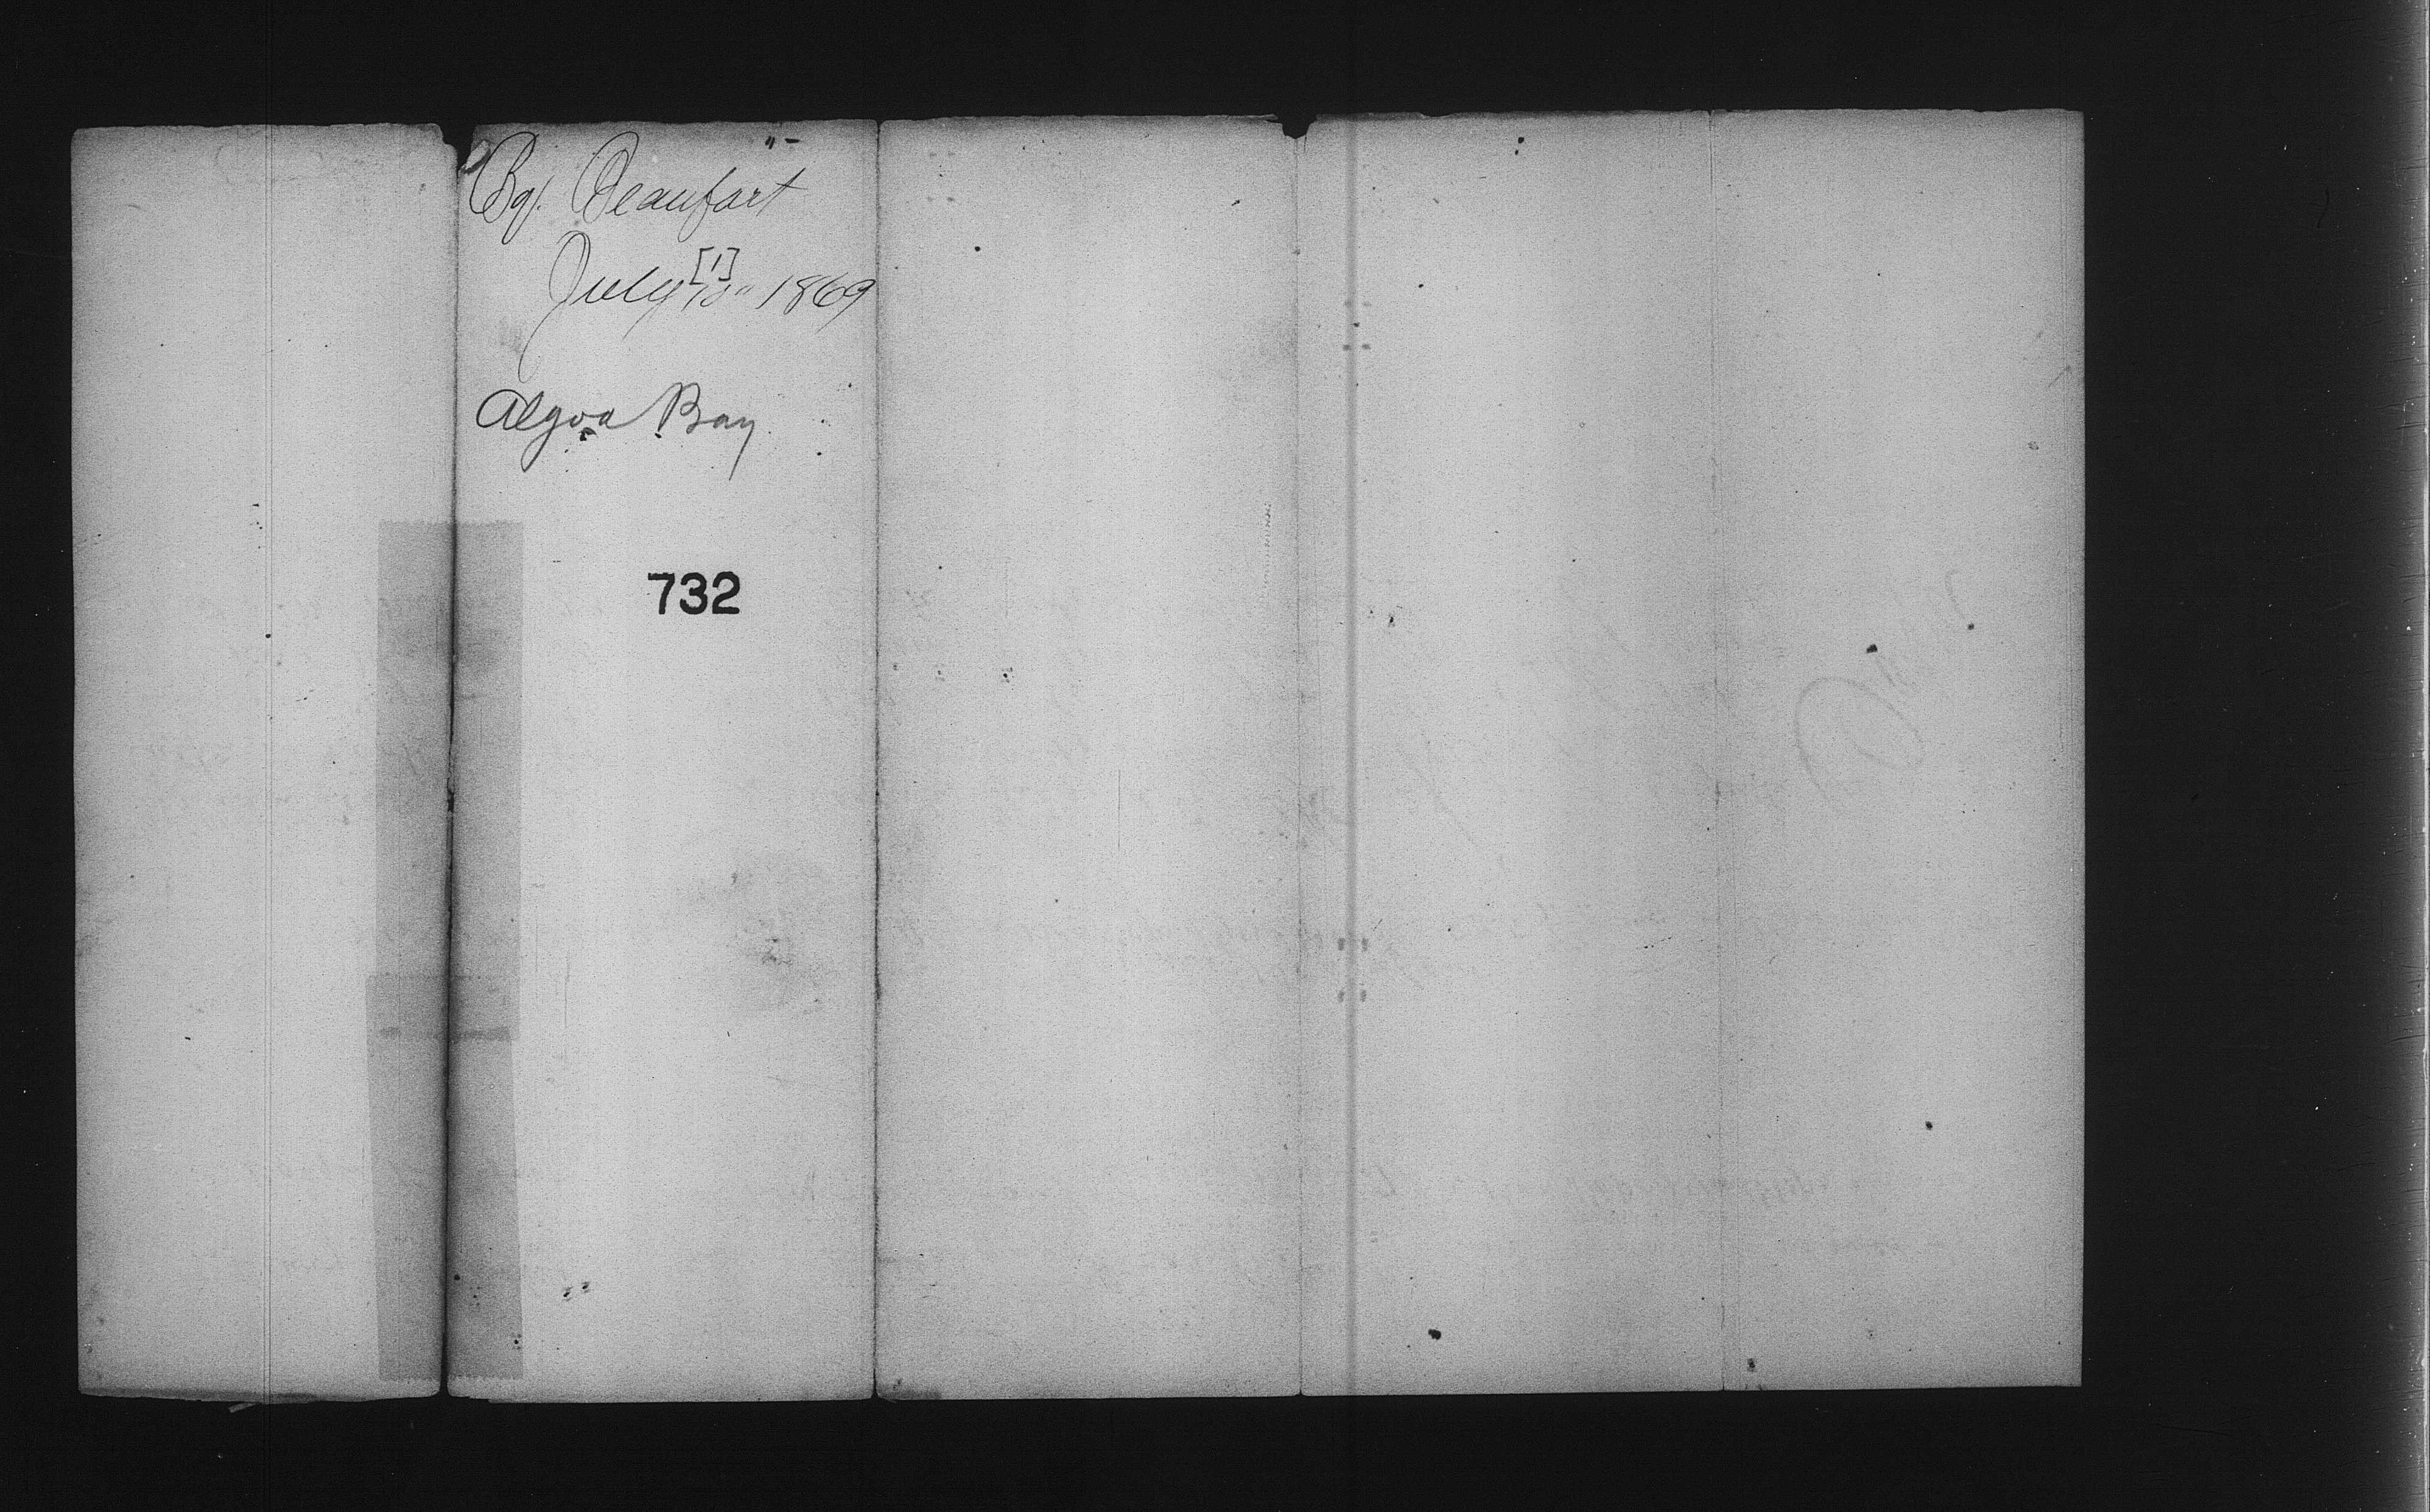 Bg. Beaufort
July [1] 10" 1869
Algoa Bay
732